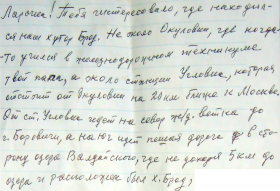 Ларочка! Тебя интересовало, где находил-
ся наш хутор Брод. Не около Окуловки, где когда-
то учился в железнодорожном техникуме
твой папа, а около станции Угловка, которая
отстоит от Окуловки на 20 км ближе к Москве.
От ст. Угловка идет на север ж/д. ветка до
г. Боровичи, а на юг идет пешая дорога в сто-
рону озера Валдайского, где не доходя 5 км до
озера и расположен был х. Брод,